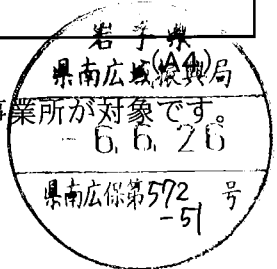 岩手県
(A4)
県南広域振興局
事業所が対象です。
-6.6.26
県南広保第572号
-51